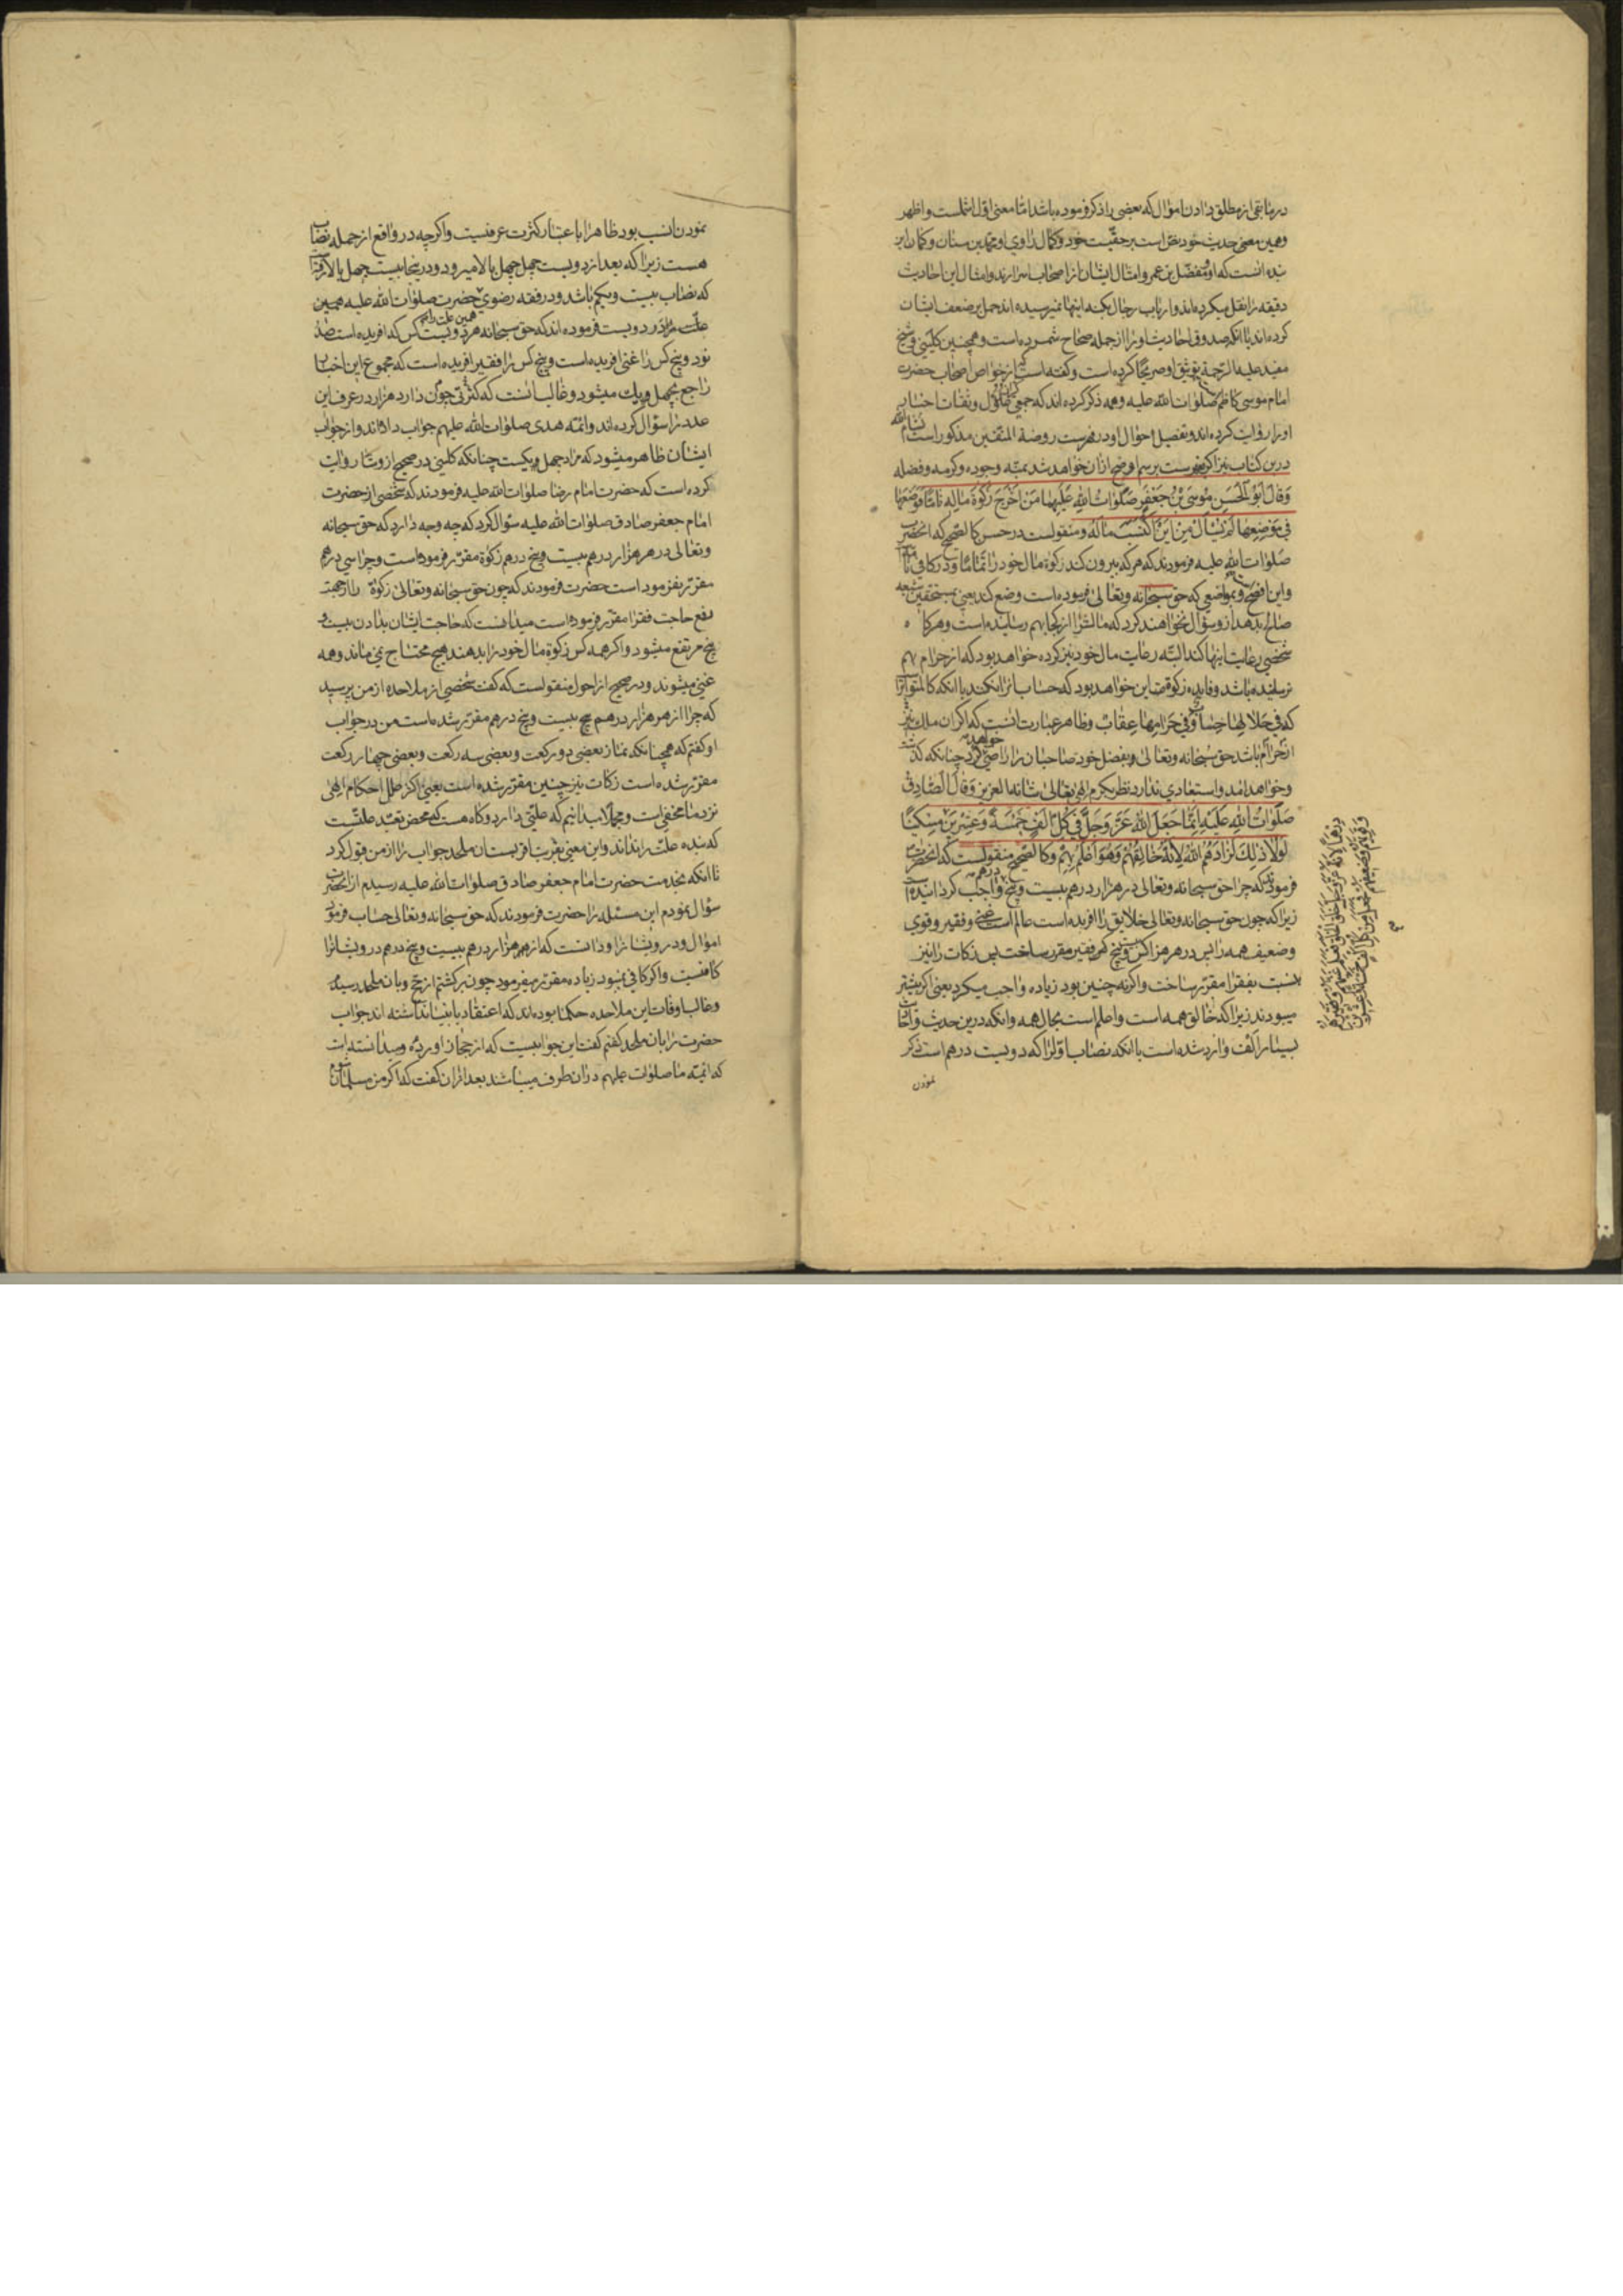 در مابقی از مطلق دادن اموال که بعضی را ذکر فرموده باشد اما معنی اول اشملست و اظهر
و همین معنی حدیث خود نص است بر حقیت خود و کمال راوی او محمد بن سنان و کمان این
بنده انست که او و مفضل بن عمر و امثال ایشان از اصحاب اسرارند و امثال این احادیث
دقیقه را نقل میکرده‌اند و ارباب رجال بکنه اینها نمیرسیده اند حمل بر ضعف ایشان
کرده‌اند با انکه صدوق احادیث او را از جمله صحاح شمرده است و همچنین کلینی و شیخ
مفید علیه الرحمة توثیق او صریحا کرده است و کفته است که از خواص اصحاب حضرت
امام موسی کاظم صلوات الله علیه و همه ذکر کرده اند که جمعی کثیر از عدول و ثقات اخبار
او را روایت کرده‌اند و تفصیل احوال او در فهرست روضة المتقین مذکور است
درین کتاب نیز اکر بفهرست برسم اوضح از ان خواهد شد بمنه و جوده و کرمه و فضله
وَقالَ اَبُو الْحَسَنِ مُوسَی بْنُ جَعْفَرٍ صَلَوٰاتُ اللهِ عَلَیْهِمٰا مَنْ اَخْرَجَ زَکٰوةَ مٰالِهِ تٰامًّا فَوَضَعَهٰا
فی مَوْضِعِهٰا لَمْ یُسْأَلْ مِنْ اَیْنَ اکْتَسَبَ مٰالَهُ و منقولست در حسن کالصحیح که انحضرت
صلوات الله علیه فرمودند که هر که بیرون کند زکوة مال خود را تماما و در کافی تاما
و این افصح و بمواضعی که حق سبحانه و تعالی فرموده است وضع کند یعنی بمستحقین شیعه
صلح بدهد از و سؤال نخواهند کرد که مالش را از کجا بهم رسانیده است و هر کاه
شخصی رعایت اینها کند البته رعایت مال خود نیز کرده خواهد بود که از حرام بهم
نرسانیده باشد و فایده زکوة این خواهد بود که حساب انرا نکنند با انکه کالمتواتر است
که فی حَلالِهٰا حِسٰابٌ وَفی حَرٰامِهٰا عِقٰابٌ و ظاهر عبارت انست که اکر ان ملک نیز
از حرام باشد حق سبحانه و تعالی بفضل خود صاحبان را راضی خواهد کرد چنانکه کذشت
و خواهد امد و استبعادی ندارد نظر بکرم الهی تعالی شانه العزیز وَقٰالَ الصّٰادِقُ
صَلَوٰاتُ اللهِ عَلَیْهِ اِنَّمٰا جَعَلَ اللهُ عَزَّ وَجَلَّ فی کُلِّ اَلْفٍ خَمْسَةً وَعِشْرینَ مِسْکینًا
لَوْلٰا ذٰلِکَ لَزٰادَهُمُ اللهُ لِاَنَّهُ خٰالِقُهُمْ وَهُوَ اَعْلَمُ بِهِمْ و کالصحیح منقولست که انحضرت
فرمودند که چرا حق سبحانه و تعالی در هزار درهم بیست و پنج درهم واجب کردانیده است
زیرا که چون حق سبحانه و تعالی خلایق را افریده است عالم است غنی و فقیر و قوی
و ضعیف همه را پس در هر هزار کس بیست و پنج کس فقیر مقرر ساخت پس زکات را نیز
بنسبت بفقرا مقرر ساخت و اکر نه چنین بود زیاده واجب میکرد یعنی اکر بیشتر
میبودند زیرا که خالق همه است و اعلم است بحال همه و انکه درین حدیث و احادیث
بسیار الف وارد شده است با انکه نصاب اول را که دویست درهم است ذکر
نمودن
نمودن انسب بود ظاهرا باعتبار کثرت عرفیست و اکر چه در واقع از جمله نصاب
هست زیرا که بعد از دویست چهل چهل بالا میرود و در پنجا بیست چهل بالا رفته است
که نصاب بیست و یکم باشد و در فقه رضوی حضرت صلوات الله علیه همین
علت را در دویست فرموده اند که حق سبحانه هر دویست کس که افریده است صد
نود و پنج کس را غنی افریده است و پنج کس را فقیر افریده است که مجموع این اخبار
راجع بچهل و یک میشود و غالب انست که کثرتی چون دارد هزار در عرف این
عدد را سؤال کرده‌اند و ائمه هدی صلوات الله علیهم جواب داده‌اند و از جواب
ایشان ظاهر میشود که مراد چهل و یکیست چنانکه کلینی در صحیح از وشا روایت
کرده است که حضرت امام رضا صلوات الله علیه فرمودند که شخصی از حضرت
امام جعفر صادق صلوات الله علیه سؤال کرد که چه وجه دارد که حق سبحانه
و تعالی در هر هزار درهم بیست و پنج درهم زکوة مقرر فرموده است و چرا سی درهم
مقرر نفرمود است حضرت فرمودند که چون حق سبحانه و تعالی زکوة را از جهت
رفع حاجت فقرا مقرر فرموده است میدانست که حاجت ایشان بدادن بیست و
پنج مرتفع میشود و اکر همه کس زکوة مال خود را بدهند هیچ محتاج نمی ماند و همه
غنی میشوند و در صحیح از احول منقولست که کفت شخصی از ملاحده از من پرسید
که چرا از هر هزار درهم بیست و پنج درهم مقرر شده است من در جواب
او کفتم که همچنانکه نماز بعضی دو رکعت و بعضی سه رکعت و بعضی چهار رکعت
مقرر شده است زکات نیز چنین مقرر شده است یعنی اکثر علل احکام الهی
نزد ما مخفی است و مجملا میدانیم که علتی دارد و کاه هست که محض تعبد علتست
که بنده علت را نداند و این معنی بقربت اقربست ان ملحد جواب را از من قبول کرد
تا انکه بخدمت حضرت امام جعفر صادق صلوات الله علیه رسیدم از انحضرت
سؤال نمودم این مسئله را حضرت فرمودند که حق سبحانه و تعالی حساب فرمود
اموال و درویشانرا و دانست که از هر هزار درهم بیست و پنج درهم درویشانرا
کافیست و اکر کافی نمیبود زیاده مقرر میفرمود چون برکشتم از حج و بان ملحد رسیدم
و غالب اوقات این ملاحده حکما بوده‌اند که اعتقاد بانبیا نداشته اند جواب
حضرت را بان ملحد کفتم کفت این جوابیست که از حجاز اورده و میدانسته است
که ائمه ما صلوات علیهم در ان طرف میباشند بعد از ان کفت که اکر من مسلمان